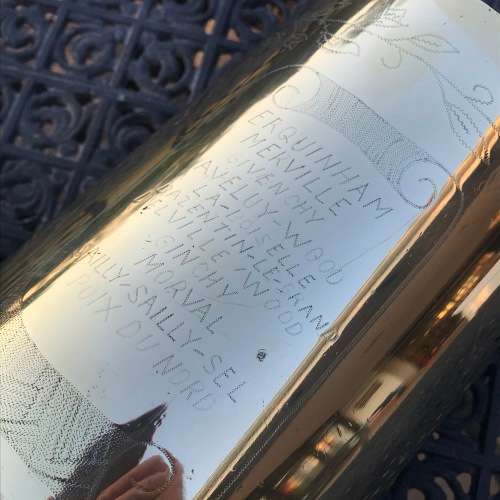 ERQUINHAM
MERVILLE
GIVENCHY
AVELUY-WOOD
LA-BOISELLE
BAZENTIN-LE-GRAND
DELVILLE WOOD
GINCHY
MORVAL
SAILLY-SAILLY-SEL
POIX DU NORD